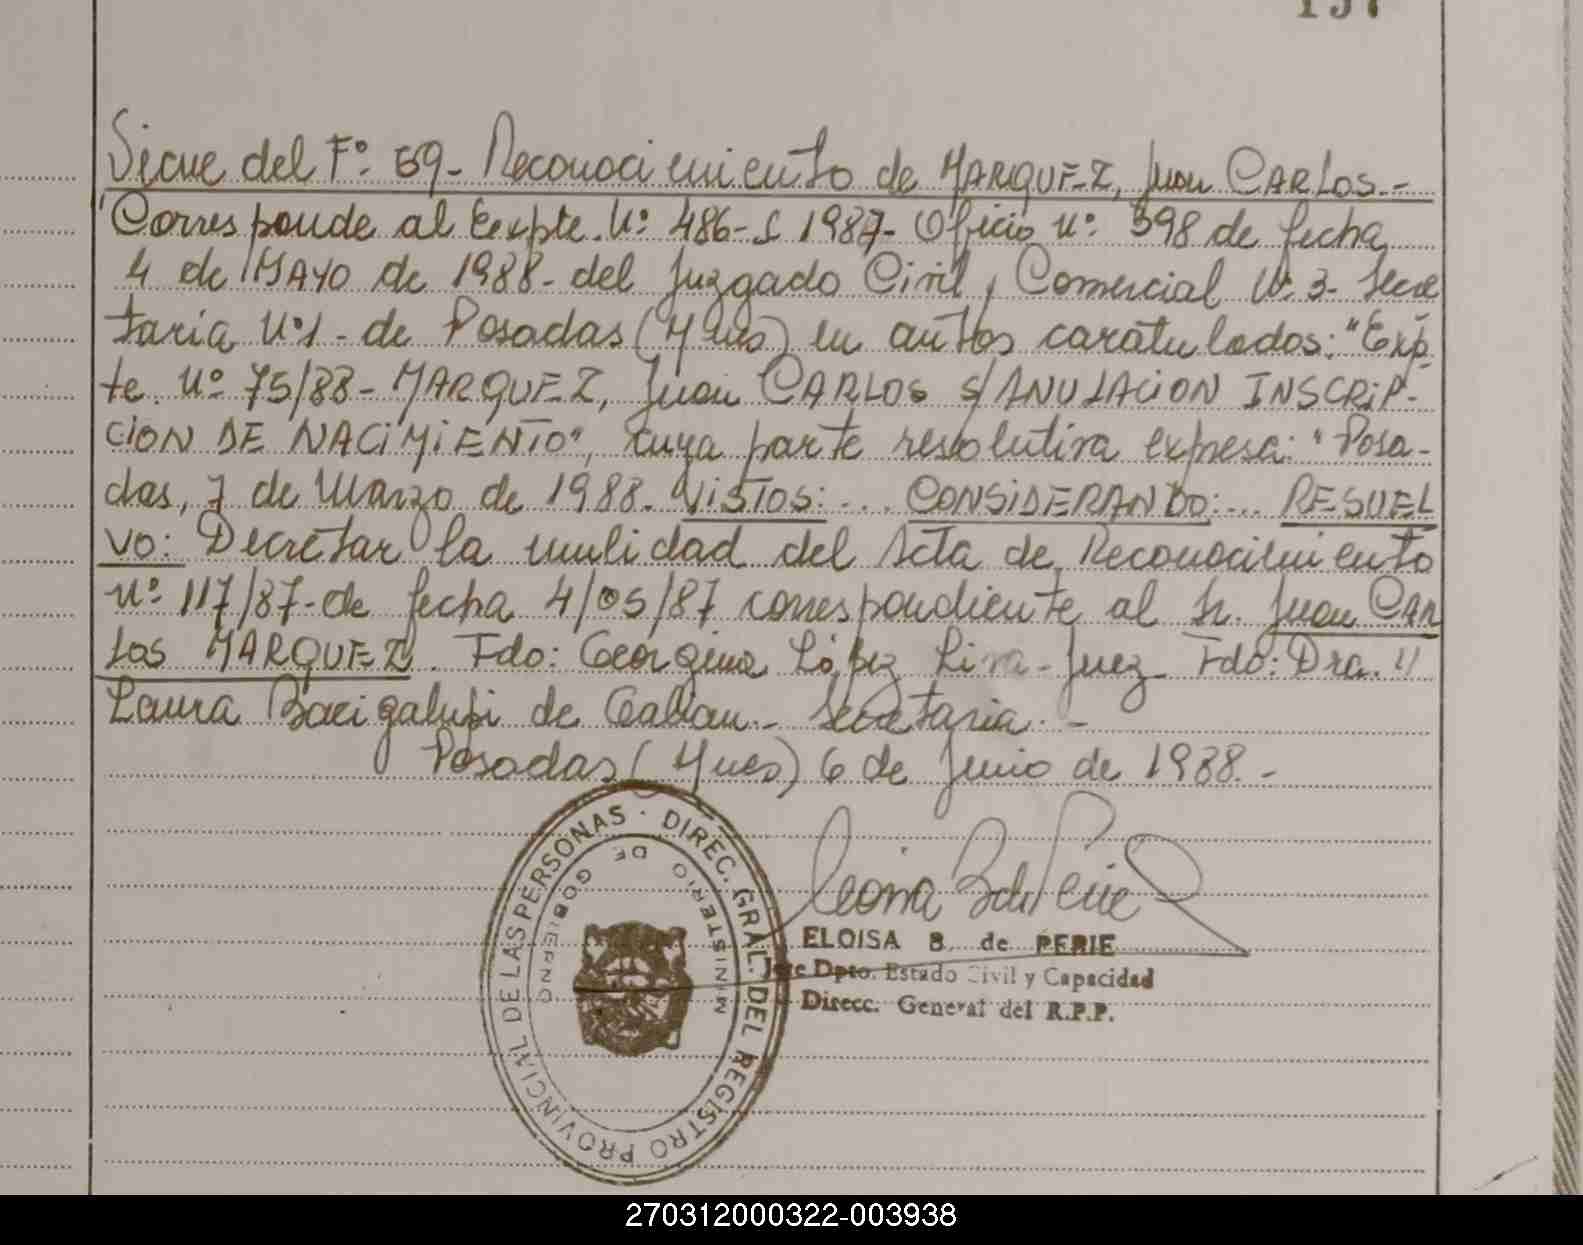 157
Sigue del F° 59- Reconocimiento de MARQUEZ, Juan CARLOS.-
Corresponde al Expte. N° 486-S 1987- Oficio N° 398 de fecha
4 de MAYO de 1988- del Juzgado Civil y Comercial N° 3- Secre
taria N°1- de Posadas (Mnes) en autos caratulados: "Exp.
te. N° 75/88- MARQUEZ, Juan CARLOS S/ANULACION INSCRIP-
CION DE NACIMIENTO", cuya parte resolutiva expresa: "Posa-
das, 7 de Marzo de 1988- VISTOS:... CONSIDERANDO:... RESUEL
VO: Decretar la nulidad del Acta de Reconocimiento
N° 117/87- de fecha 4/05/87 correspondiente al Sr. Juan CAR
LOS MARQUEZ. Fdo: Georgina López Liva- Juez- Fdo: Dra. "
Laura Bacigalupi de Galban- Secretaria.-
Posadas (Mnes) 6 de Junio de 1988.-
DIREC. GRAL. DEL REGISTRO PROVINCIAL DE LAS PERSONAS
MINISTERIO DE GOBIERNO
ELOISA B. de PERIE
Jefe Dpto. Estado Civil y Capacidad
Direcc. General del R.P.P.
270312000322-003938